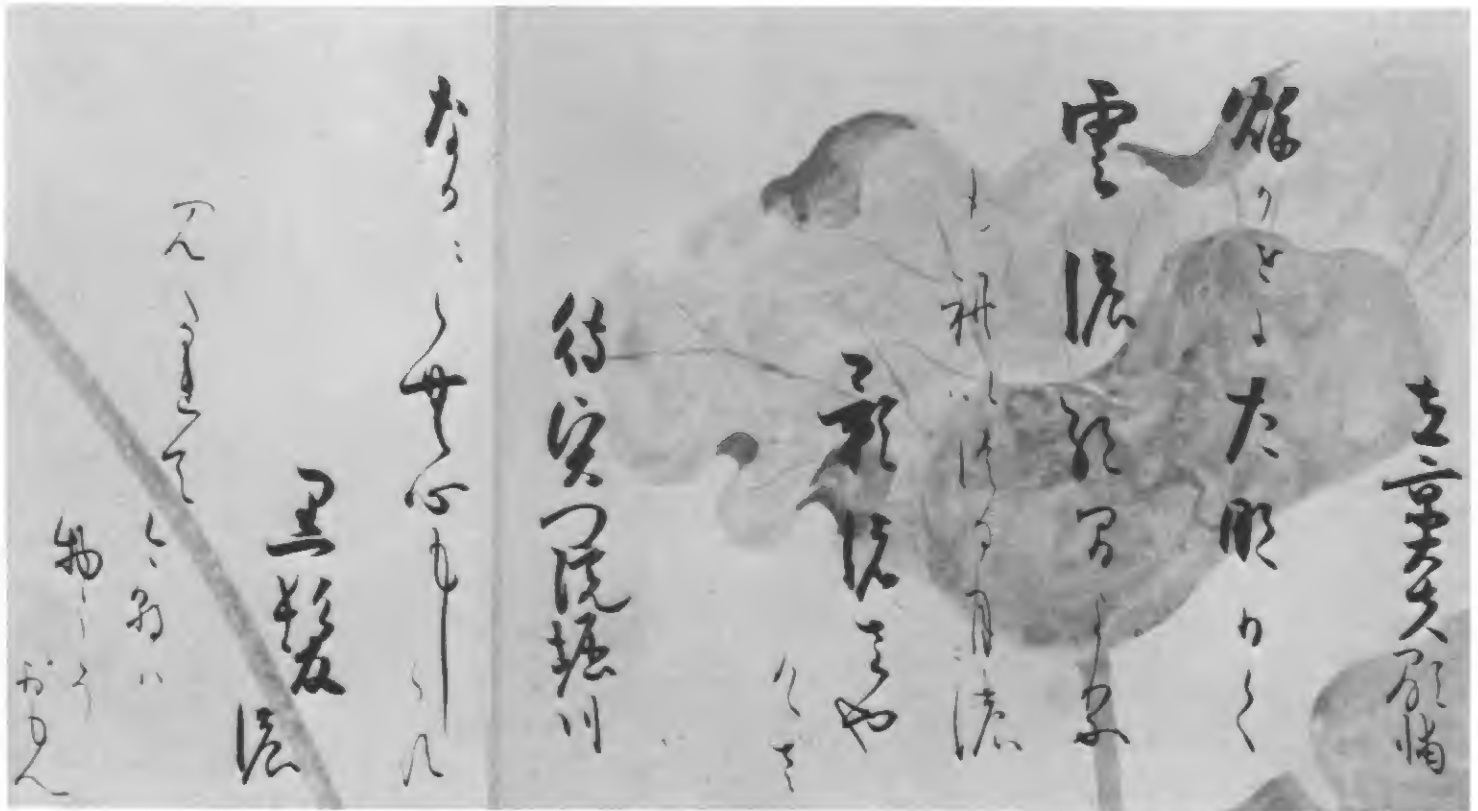 左京大夫顕輔
秋かせにたな飛く
雲濃絶間より
もれいつる月濃
影濃さや
けさ
待賢門院堀川
なかゝらむ心もしらす
黒髪
濃
みたれて
けさハ
物をこそ
おもへ